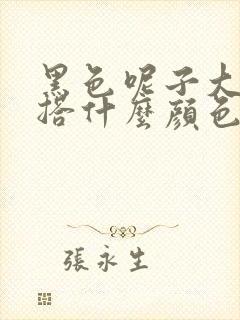 黑色呢子大
搭什麼顔色
張永生